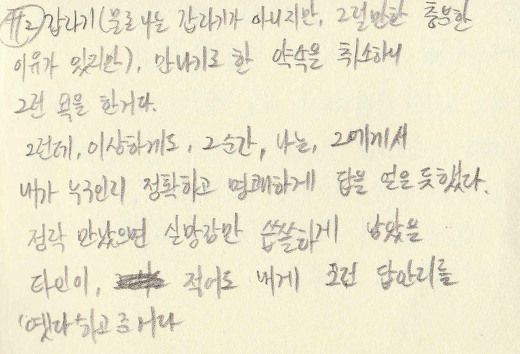 #2) 갑자기 (물론 나는 갑자기가 아니지만, 그럴만한 충분한
이유가 있지만), 만나기로 한 약속을 취소하니
그런 욕을 한거다.
그런데, 이상하게도, 그순간, 나는, 그에게서
내가 누구인지 정확하고 명쾌하게 답을 얻은 듯했다.
정작 만났으면 실망감만 씁쓸하게 남았을
타인이, 적어도 내게 그런 답안지를
'옛다' 하고 준거다